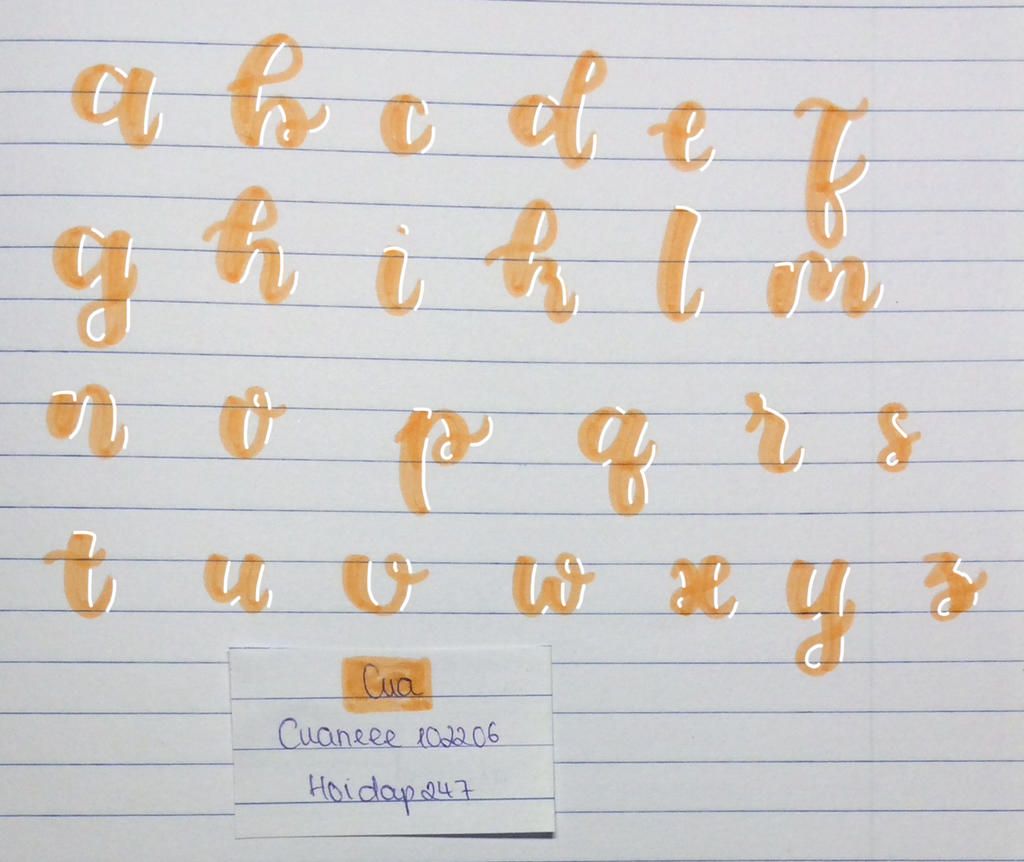 a b c d e f
g h i k l m
n o p q r s
t u v w x y z
Cua
Cuaneee 102206
Hoidap247